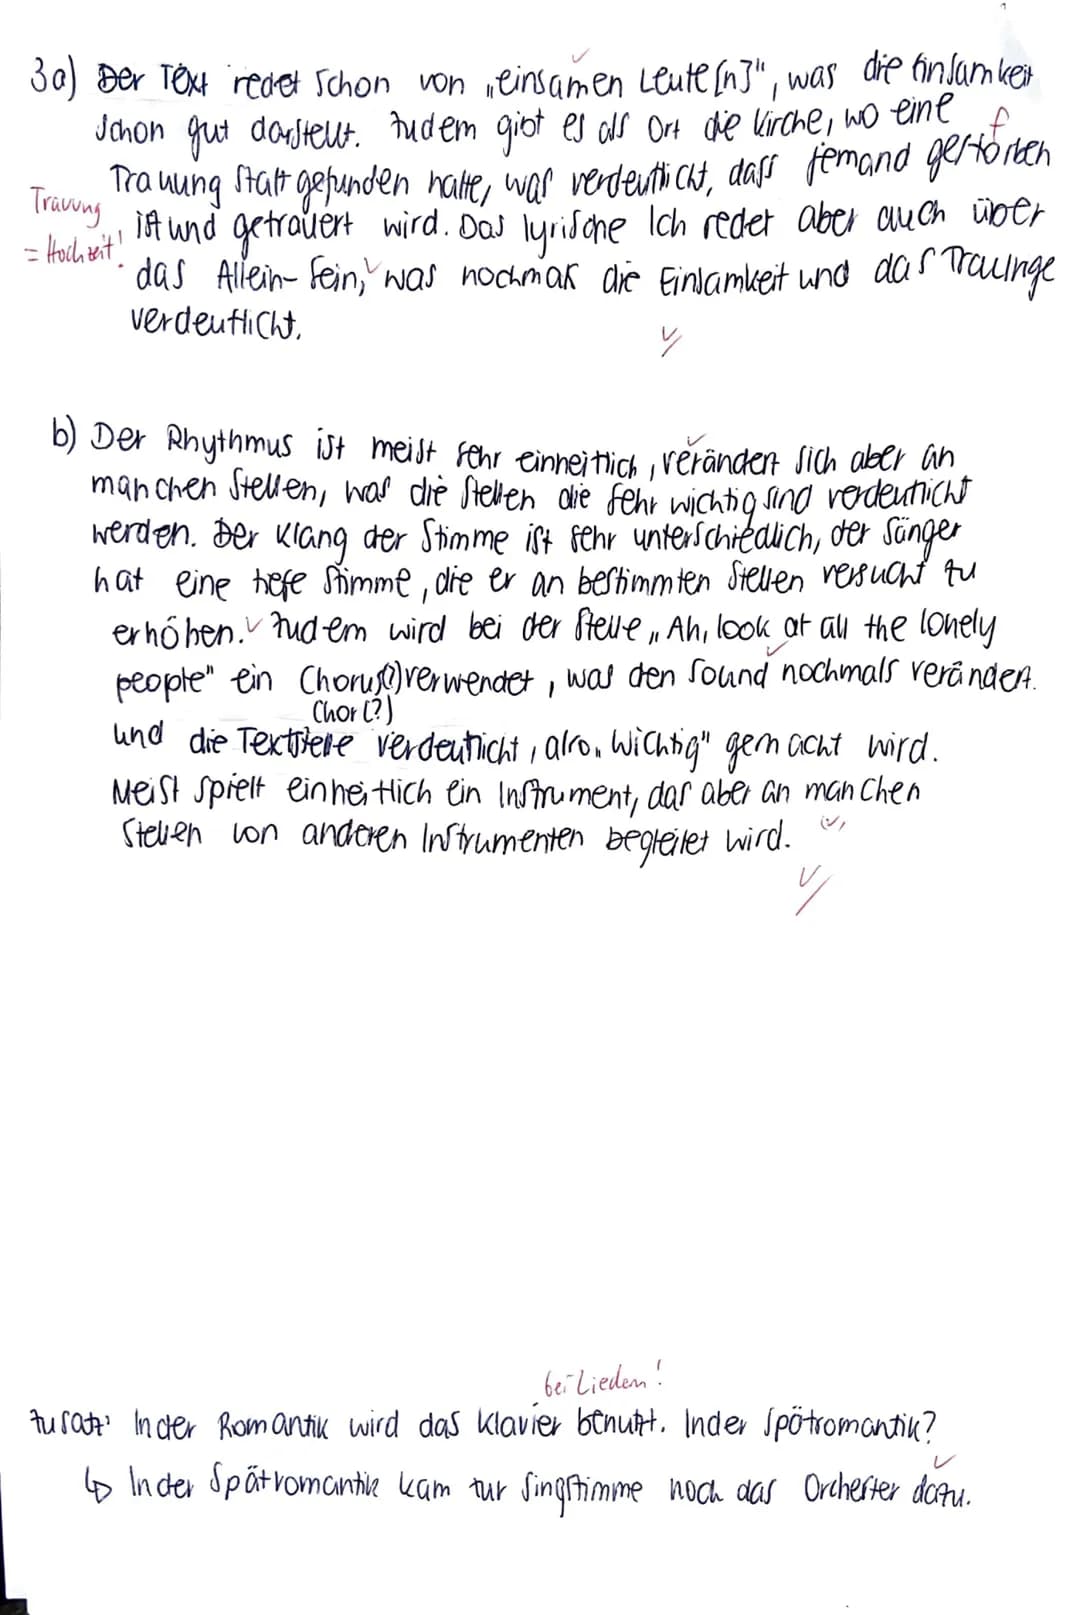 3a) Der Text redet schon von „einsamen Leute[n]", was die Einsamkeit
schon gut darstellt. Zudem gibt es als Ort die Kirche, wo eine
f
Trauung statt gefunden hatte, was verdeutlicht, dass jemand gestorben
Trauung
ist und getrauert wird. Das lyrische Ich redet aber auch über
= Hochzeit!
das Allein-Sein, was nochmals die Einsamkeit und das Traurige
verdeutlicht.
b) Der Rhythmus ist meist sehr einheitlich, verändert sich aber an
manchen Stellen, was die Stellen die sehr wichtig sind verdeutlicht
werden. Der Klang der Stimme ist sehr unterschiedlich, der Sänger
hat eine tiefe Stimme, die er an bestimmten Stellen versucht zu
erhöhen. Zudem wird bei der Stelle „Ah, look at all the lonely
people" ein Chorus(?) verwendet, was den Sound nochmals verändert.
Chor (?)
und die Textstelle verdeutlicht, also „wichtig" gemacht wird.
Meist spielt einheitlich ein Instrument, das aber an manchen
Stellen von anderen Instrumenten begleitet wird.
bei Liedern!
Zusatz: In der Romantik wird das Klavier benutzt. In der Spätromantik?
↳ In der Spätromantik kam zur Singstimme noch das Orchester dazu.